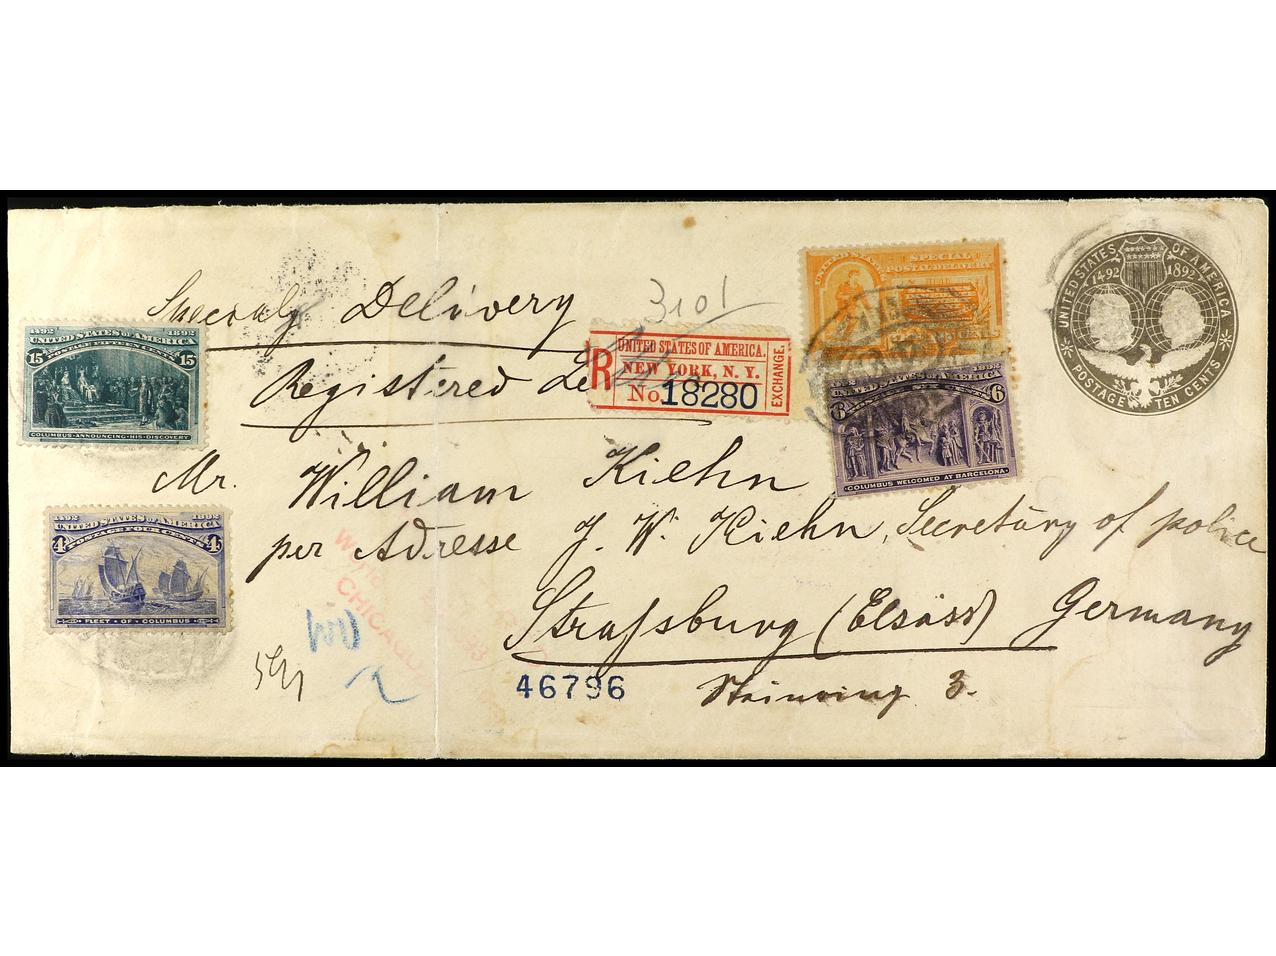 Special Delivery
3101
Registered
R
UNITED STATES OF AMERICA.
NEW YORK, N. Y.
No 18280
EXCHANGE.
1492 1892
UNITED STATES OF AMERICA
15 POSTAGE FIFTEEN CENTS 15
COLUMBUS · ANNOUNCING · HIS · DISCOVERY
UNITED STATES
SPECIAL
POSTAL DELIVERY
1492 1892
UNITED STATES OF AMERICA
6 6
COLUMBUS WELCOMED AT BARCELONA
UNITED STATES OF AMERICA
1492 1892
POSTAGE TEN CENTS
Mr. William Kiehn
per Adresse J. W. Kiehn, Secretary of police
Strassburg (Elsäss) Germany
1492 1892
UNITED STATES OF AMERICA
4 POSTAGE FOUR CENTS 4
FLEET · OF · COLUMBUS
CHICAGO
46796
3.